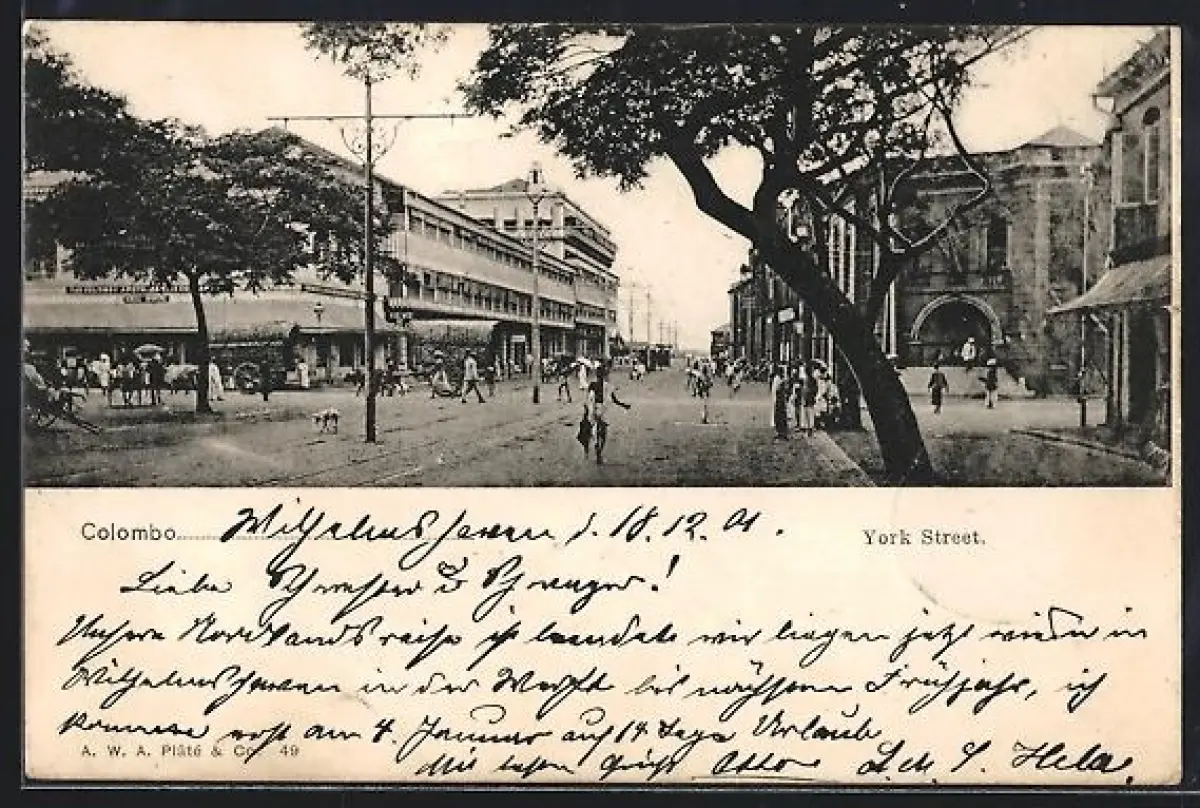 Colombo Wilhelmshaven d. 18.12.01.
York Street.
Liebe Schwester & Schwager!
Unsere Nordlandsreise ist beendet wir liegen jetzt wieder in
Wilhelmshaven in der Werft bis nächsten Frühjahr, ich
komme erst am 4. Januar auf 14 Tage Urlaub
A. W. A. Plâté & Co. 49
Mit besten Gruß Otto S.M.S. Hela.